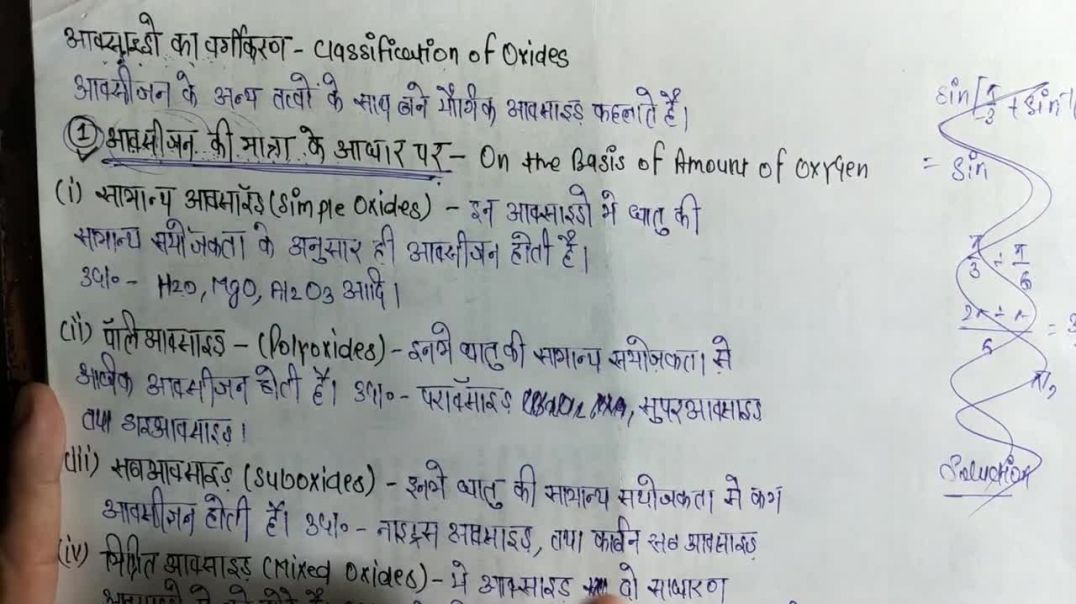 आक्साइडो का वर्गीकरण - Classification of Oxides
आक्सीजन के अन्य तत्वों के साथ बने यौगिक आक्साइड कहलाते है।
① आक्सीजन की मात्रा के आधार पर - On the Basis of Amount of Oxygen
(i) सामान्य आक्साइड (Simple Oxides) - इन आक्साइडो मे धातु की
सामान्य संयोजकता के अनुसार ही आक्सीजन होती है।
उदा० - H2O, MgO, Al2O3 आदि।
(ii) पॉलीआक्साइड - (Polyoxides) - इनमे धातु की सामान्य संयोजकता से
अधिक आक्सीजन होती है। उदा० - पराक्साइड, सुपरआक्साइड
तथा डाइआक्साइड।
(iii) सबआक्साइड (Suboxides) - इनमे धातु की सामान्य संयोजकता से कम
आक्सीजन होती है। उदा० - नाइट्रस आक्साइड, तथा कार्बन सब आक्साइड
(iv) मिश्रित आक्साइड (Mixed Oxides) - ये आक्साइड दो साधारण
sin [π/3 + sin
= sin
π/3 ÷ π/6
Solution